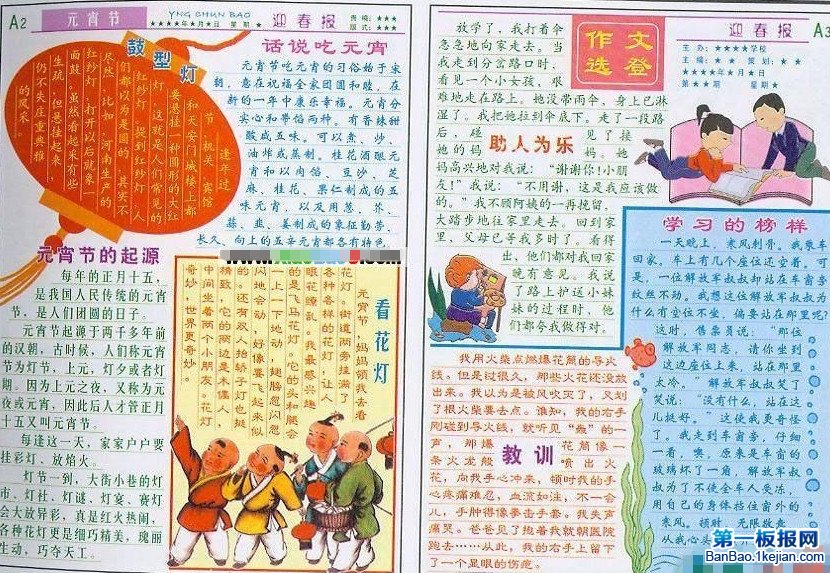 A2
元宵节
YING CHUN BAO
★★★★年★月★日 星期★
迎春报
责编：★★★
版式：★★★
鼓型灯
逢年过
节，机关、宾馆
和天安门城楼上都
要悬挂一种圆形的大红
灯，这就是人们常见的
红纱灯。提到红纱灯，人
们都以为是圆的，其实不
尽然，比如，河南生产的
红纱灯，打开以后就象一
面鼓，虽然看起来有些
生疏，但悬挂起来，
仍不失庄重典雅
的风采。
话说吃元宵
元宵节吃元宵的习俗始于宋
朝，意在祝福全家团圆和睦，在
新的一年中康乐幸福。元宵分
实心和带馅两种。有香辣甜
酸咸五味。可以煮、炒、
油炸或蒸制。桂花酒酿元
宵和以肉馅、豆沙、芝
麻、桂花、果仁制成的五
味元宵，以及用葱、芥、
蒜、韭、姜制成的象征勤劳、
长久、向上的五辛元宵都各有特色
元宵节的起源
每年的正月十五，
是我国人民传统的元宵
节，是人们团圆的日子。
元宵节起源于两千多年前
的汉朝，古时候，人们称元宵
节为灯节，上元，灯夕或者灯
期。因为上元之夜，又称为元
夜或元宵，因此后人才管正月
十五又叫元宵节。
每逢这一天，家家户户要
挂彩灯、放焰火。
灯节一到，大街小巷的灯
市、灯社、灯谜、灯宴、赛灯
会大放异彩，真是红火热闹。
各种花灯更是细巧精美，瑰丽
生动，巧夺天工。
看花灯
元宵节，妈妈领我去看
花灯。街道两旁挂满了
各种各样的花灯，让人
眼花缭乱。我最感兴趣
的是飞马花灯。它的头和腿会
一上一下地动，翅膀忽闪忽
闪地会动，好像要飞起来似
的。还有双人抬轿子灯也挺
精致，它的两边是木偶人，
中间坐着两个小朋友。花灯
奇妙，世界更奇妙。
A3
迎春报
主办：★★★★学校
主编：★★ 策划：★★
★★★★年★月★日
第★★期 星期★
作文
选登
放学了，我打着伞
急急地向家走去。当
我走到分岔路口时，
看见一个小女孩，艰
难地走在路上。她没带雨伞，身上已淋
湿了。我把她拉到伞底下。走了一段路
后，碰见了接
她的妈妈。她
妈高兴地对我说：“谢谢你！小朋
友！”我说：“不用谢，这是我应该做
的。”我不顾阿姨的一再挽留，
大踏步地往家里走去。回到家
里，父母已等我多时了。看得
出，他们都对我回家
晚有意见。我说了
了路上护送小妹
妹的过程时，他
们都夸我做得对。
助人为乐
学习的榜样
一天晚上，寒风刺骨。我乘车
回家。车上有几个座位还空着。可
是，一位解放军叔叔却站在车窗旁
纹丝不动。我想这位解放军叔叔为
什么有空位不坐，偏要站在那里呢？
这时，售票员说：“那位
解放军同志，请你坐到
这边座位上来，站在那里
太冷。”解放军叔叔笑了
笑说：“没有什么，站在这
儿挺好。”这使我更奇怪
了。我走到车窗旁，仔细
一看，噢，原来是车窗的
玻璃坏了一角，解放军叔
叔为了不使全车人受冻，
用自己的身体挡住窗外的
寒风。顿时，无限敬意
从我心头
我用火柴点燃爆花筒的导火
线。但是过很久，那些火花还没放
出来。我以为是被风吹灭了，又划
了根火柴要去点。谁知，我的右手
刚碰到导火线，就听见“轰”的一
声，那爆花筒像一
条火龙般喷出火
花，向我手心冲来，顿时我的手
心疼痛难忍，血流如注，不一会
儿，手肿得像要击手套。我失声
痛哭。爸爸见了抱着我就朝医院
跑去……从此，我的右手上留下
了一个很明显的伤疤。
教训
第一板报网
BanBao.1kejian.com